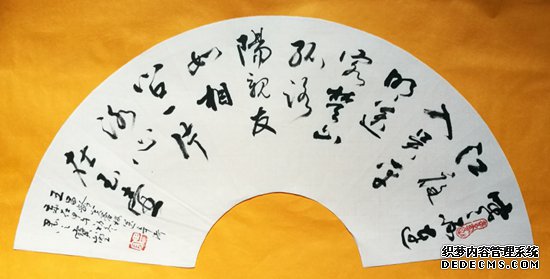 寒雨連
江夜
入吳平
明送
客楚山
孤洛
陽親友
如相
問一片
冰心
在玉壺
织梦内容管理系统
DEDECMS.COM